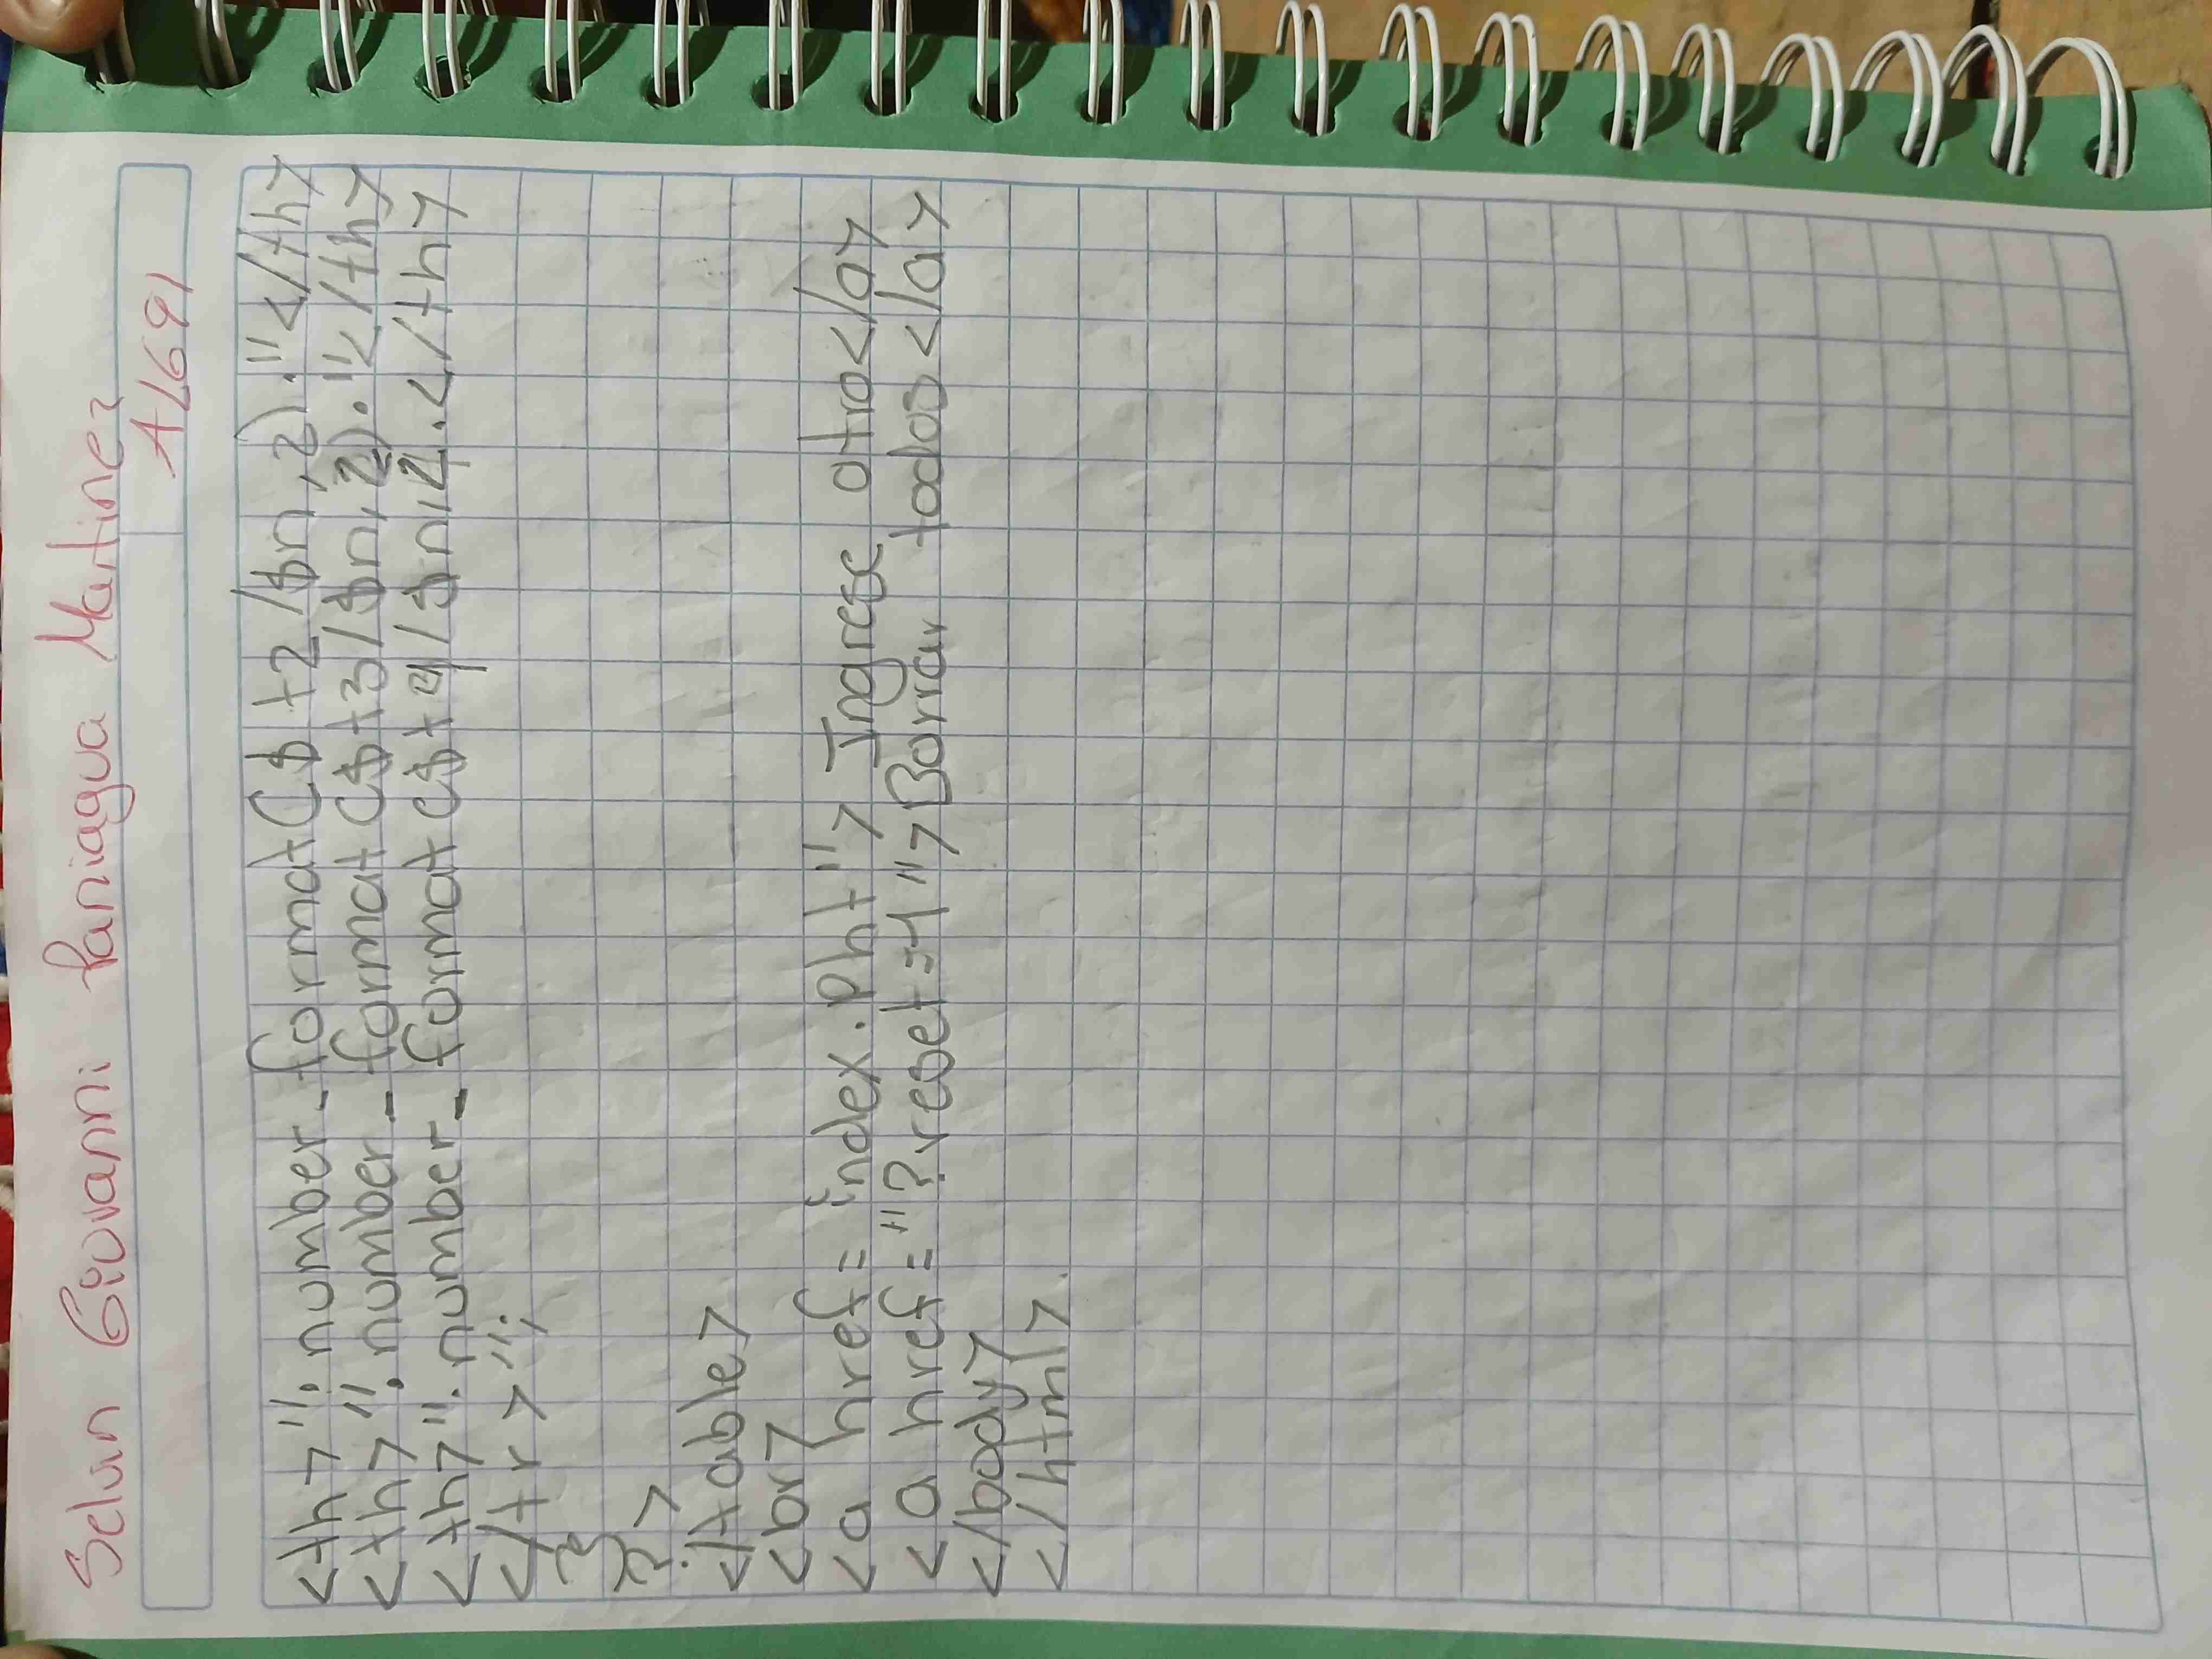 Selvin Giovanni Paniagua Martinez
AL691
<th>".number_format($ t2/$n,2)."</th>
<th>".number_format($t3/$n,2)."</th>
<th>".number_format($t4/$n,2.</th>
</tr>";
}
?>
</table>
<br>
<a href=index.pht"> Ingrese otro</a>
<a href="?reset=1">Borrar todos</a>
</body>
</html>.